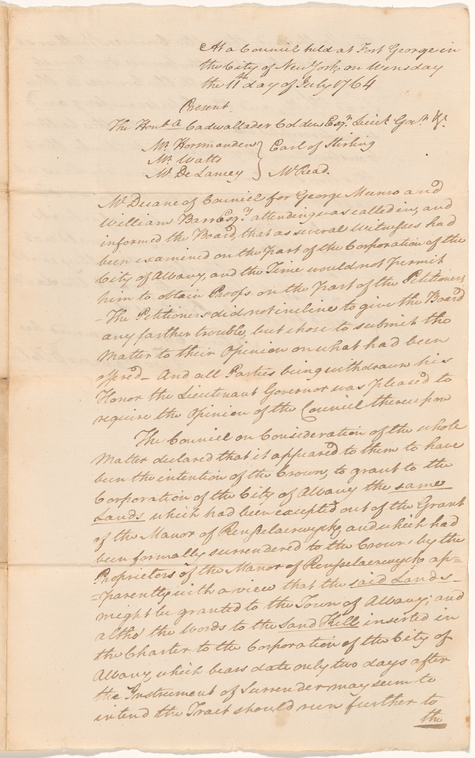 At a Council held at Fort George in
the City of New York on Wensday
the 11th day of July 1764
Present
The Honble Cadwallader Colden Esqr. Lieut Govr. &c.
Mr. Horsmanden } Earl of Stirling
Mr. Watts
Mr. De Lancey } Mr. Read.
Mr Duane of Council for George Munro and
William Barr Esqr. attending was called in, and
informed the Board, that as several Witnesses had
been examined on the part of the Corporation of the
City of Albany, and the Time would not permit
him to obtain Proofs on the part of the Petitioners
The Petitioners did not incline to give the Board
any farther trouble, but chose to submit the
Matter to their Opinion on what had been
offred— And all Parties being withdrawn his
Honor the Lieutenant Governor was pleased to
require the Opinion of the Council thereupon
The Council on Consideration of the whole
Matter declared that it appeared to them to have
been the intention of the Crown, to grant to the
Corporation of the City of Albany the same
Lands which had been excepted out of the Grant
of the Manor of Renselaerwyck, and which had
been formally surrendered to the Crown by the
Proprietors of the Manor of Renselaerwyck ap=
=parently with a view that the said Lands
might be granted to the Town of Albany; and
altho the Words to the Sand Hill inserted in
the Charter to the Corporation of the City of
Albany, which bears date only two days after
the Instrument of Surrender may seem to
intend the Tract should run further to
the